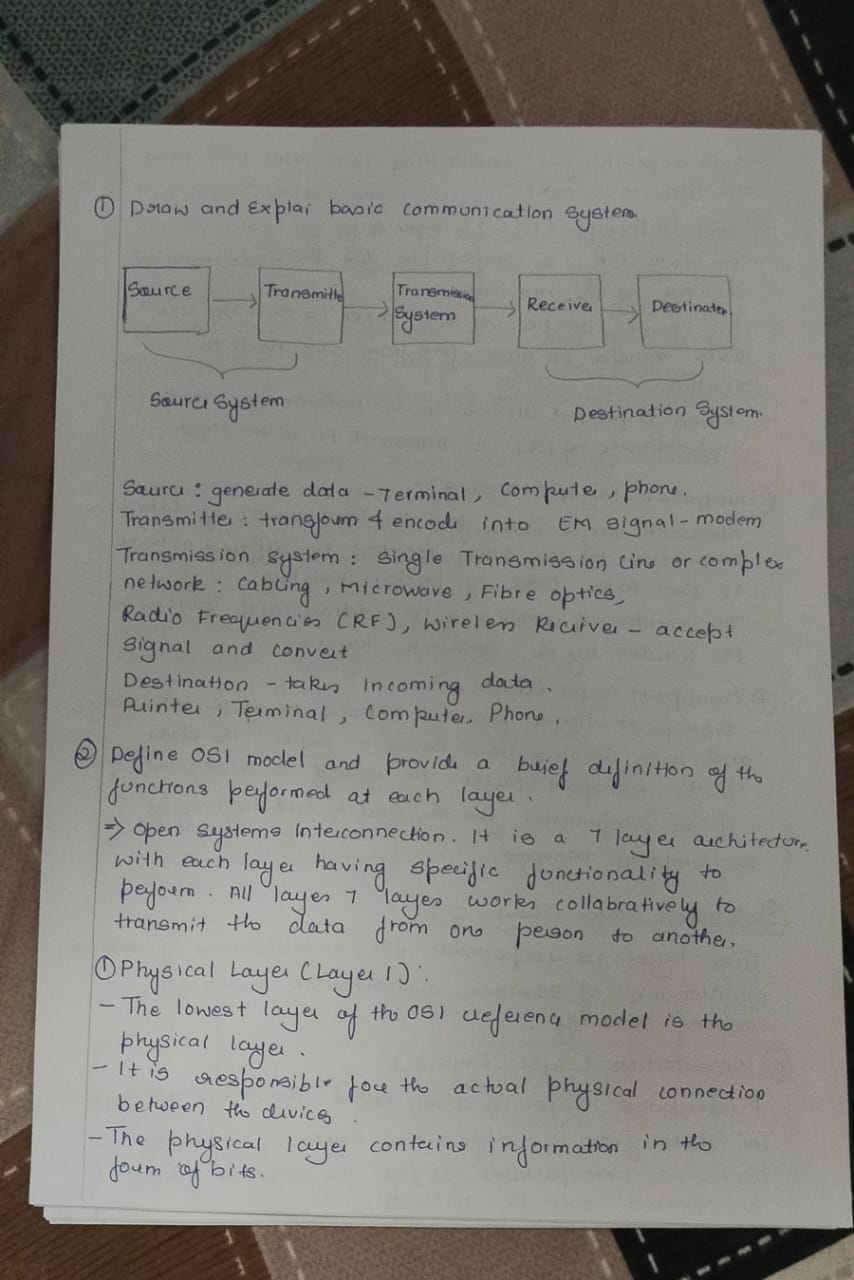 ① Draw and Explai basic communication System.
Source
Transmitte
Transmission
System
Receiver
Destinaton
Source System
Destination System.
Source : generate data - Terminal, Computer, phone.
Transmitter : transfoum & encode into EM signal - modem
Transmission system : single Transmission line or complex
network : Cabling, Microwave, Fibre optics,
Radio Frequencies (RF), wireless Reciver - accept
signal and convert
Destination - takes Incoming data.
Printer, Terminal, Computer, Phone.
② Define OSI model and provide a brief definition of the
functions performed at each layer.
⇒ Open Systems Interconnection. It is a 7 layer architecture,
with each layer having specific functionality to
perform. All layers 7 layers works collabratively to
transmit the data from one person to another.
① Physical Layer (Layer 1):
- The lowest layer of the OSI reference model is the
physical layer.
- It is responsible for the actual physical connection
between the devices.
- The physical layer contains information in the
form of bits.